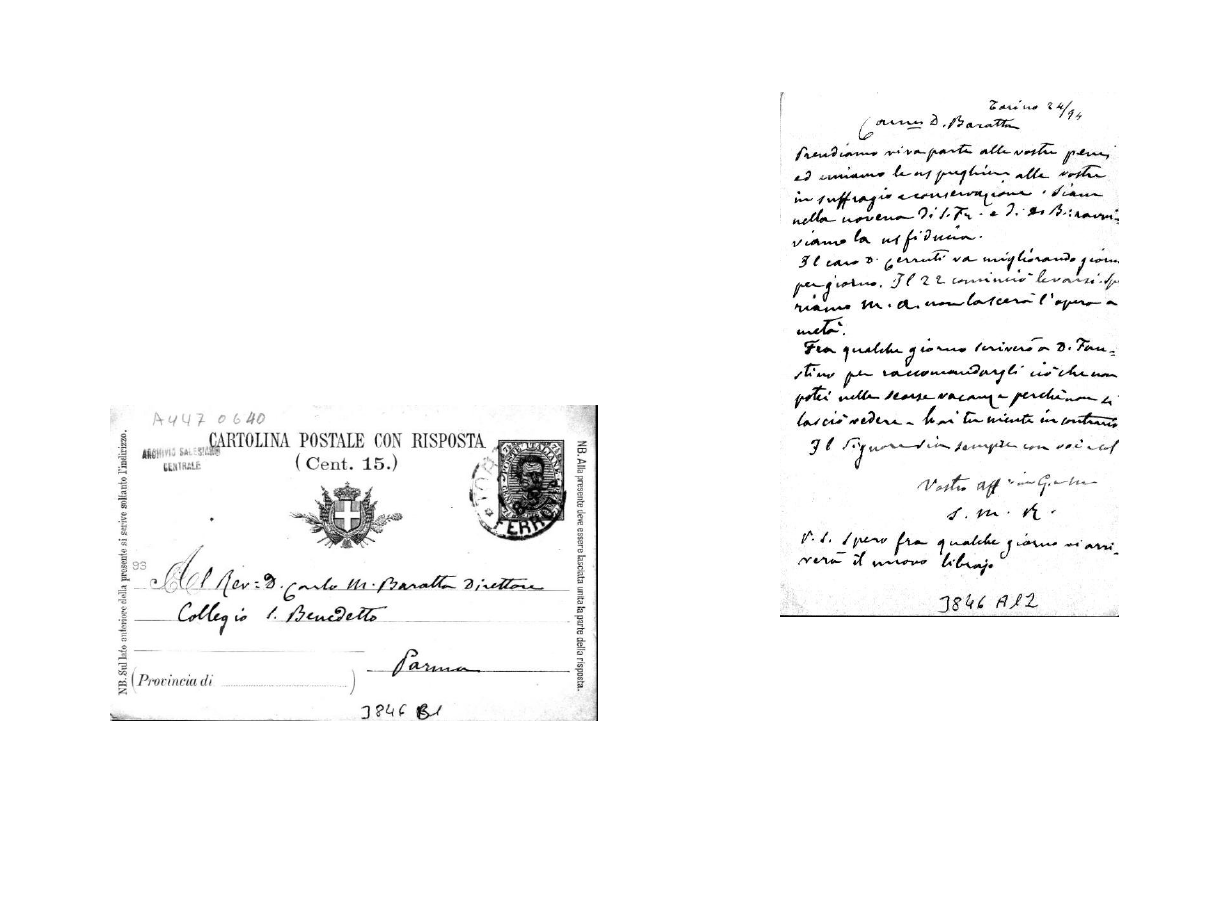 A447 0640
ARCHIVIO SALESIANO
CENTRALE
CARTOLINA POSTALE CON RISPOSTA
(Cent. 15.)
NB. Sul lato anteriore della presente si scrive soltanto l'indirizzo.
NB. Alla presente deve essere lasciata unita la parte della risposta.
FERROVIA
93
Al Rev= D. Carlo M. Baratta Direttore
Collegio S. Benedetto
Parma
(Provincia di )
3846 B1
Torino 24/94
D. Baratta
Prendiamo viva parte alle vostre pene
ed uniamo le ns preghiere alle vostre
in suffragio e conservazione. Siamo
nella novena di S. Fr. e d. B: ravvi=
viamo la ns fiducia.
Il caro D. Cerruti va migliorando giorno
per giorno. Il 22 cominciò levarsi. Spe
riamo M. A. non lascerà l'opera a
metà.
Fra qualche giorno scriverò a D. Fau=
stino per raccomandargli ciò che non
potei nelle scorse vacanze perchè non si
lasciò vedere - hai tu niente in contrario
Il Signore sia sempre con voi e col
Vostro aff in G. e M.
S. M. R.
P. S. Spero fra qualche giorno vi arri=
verà il nuovo librajo
3846 A12